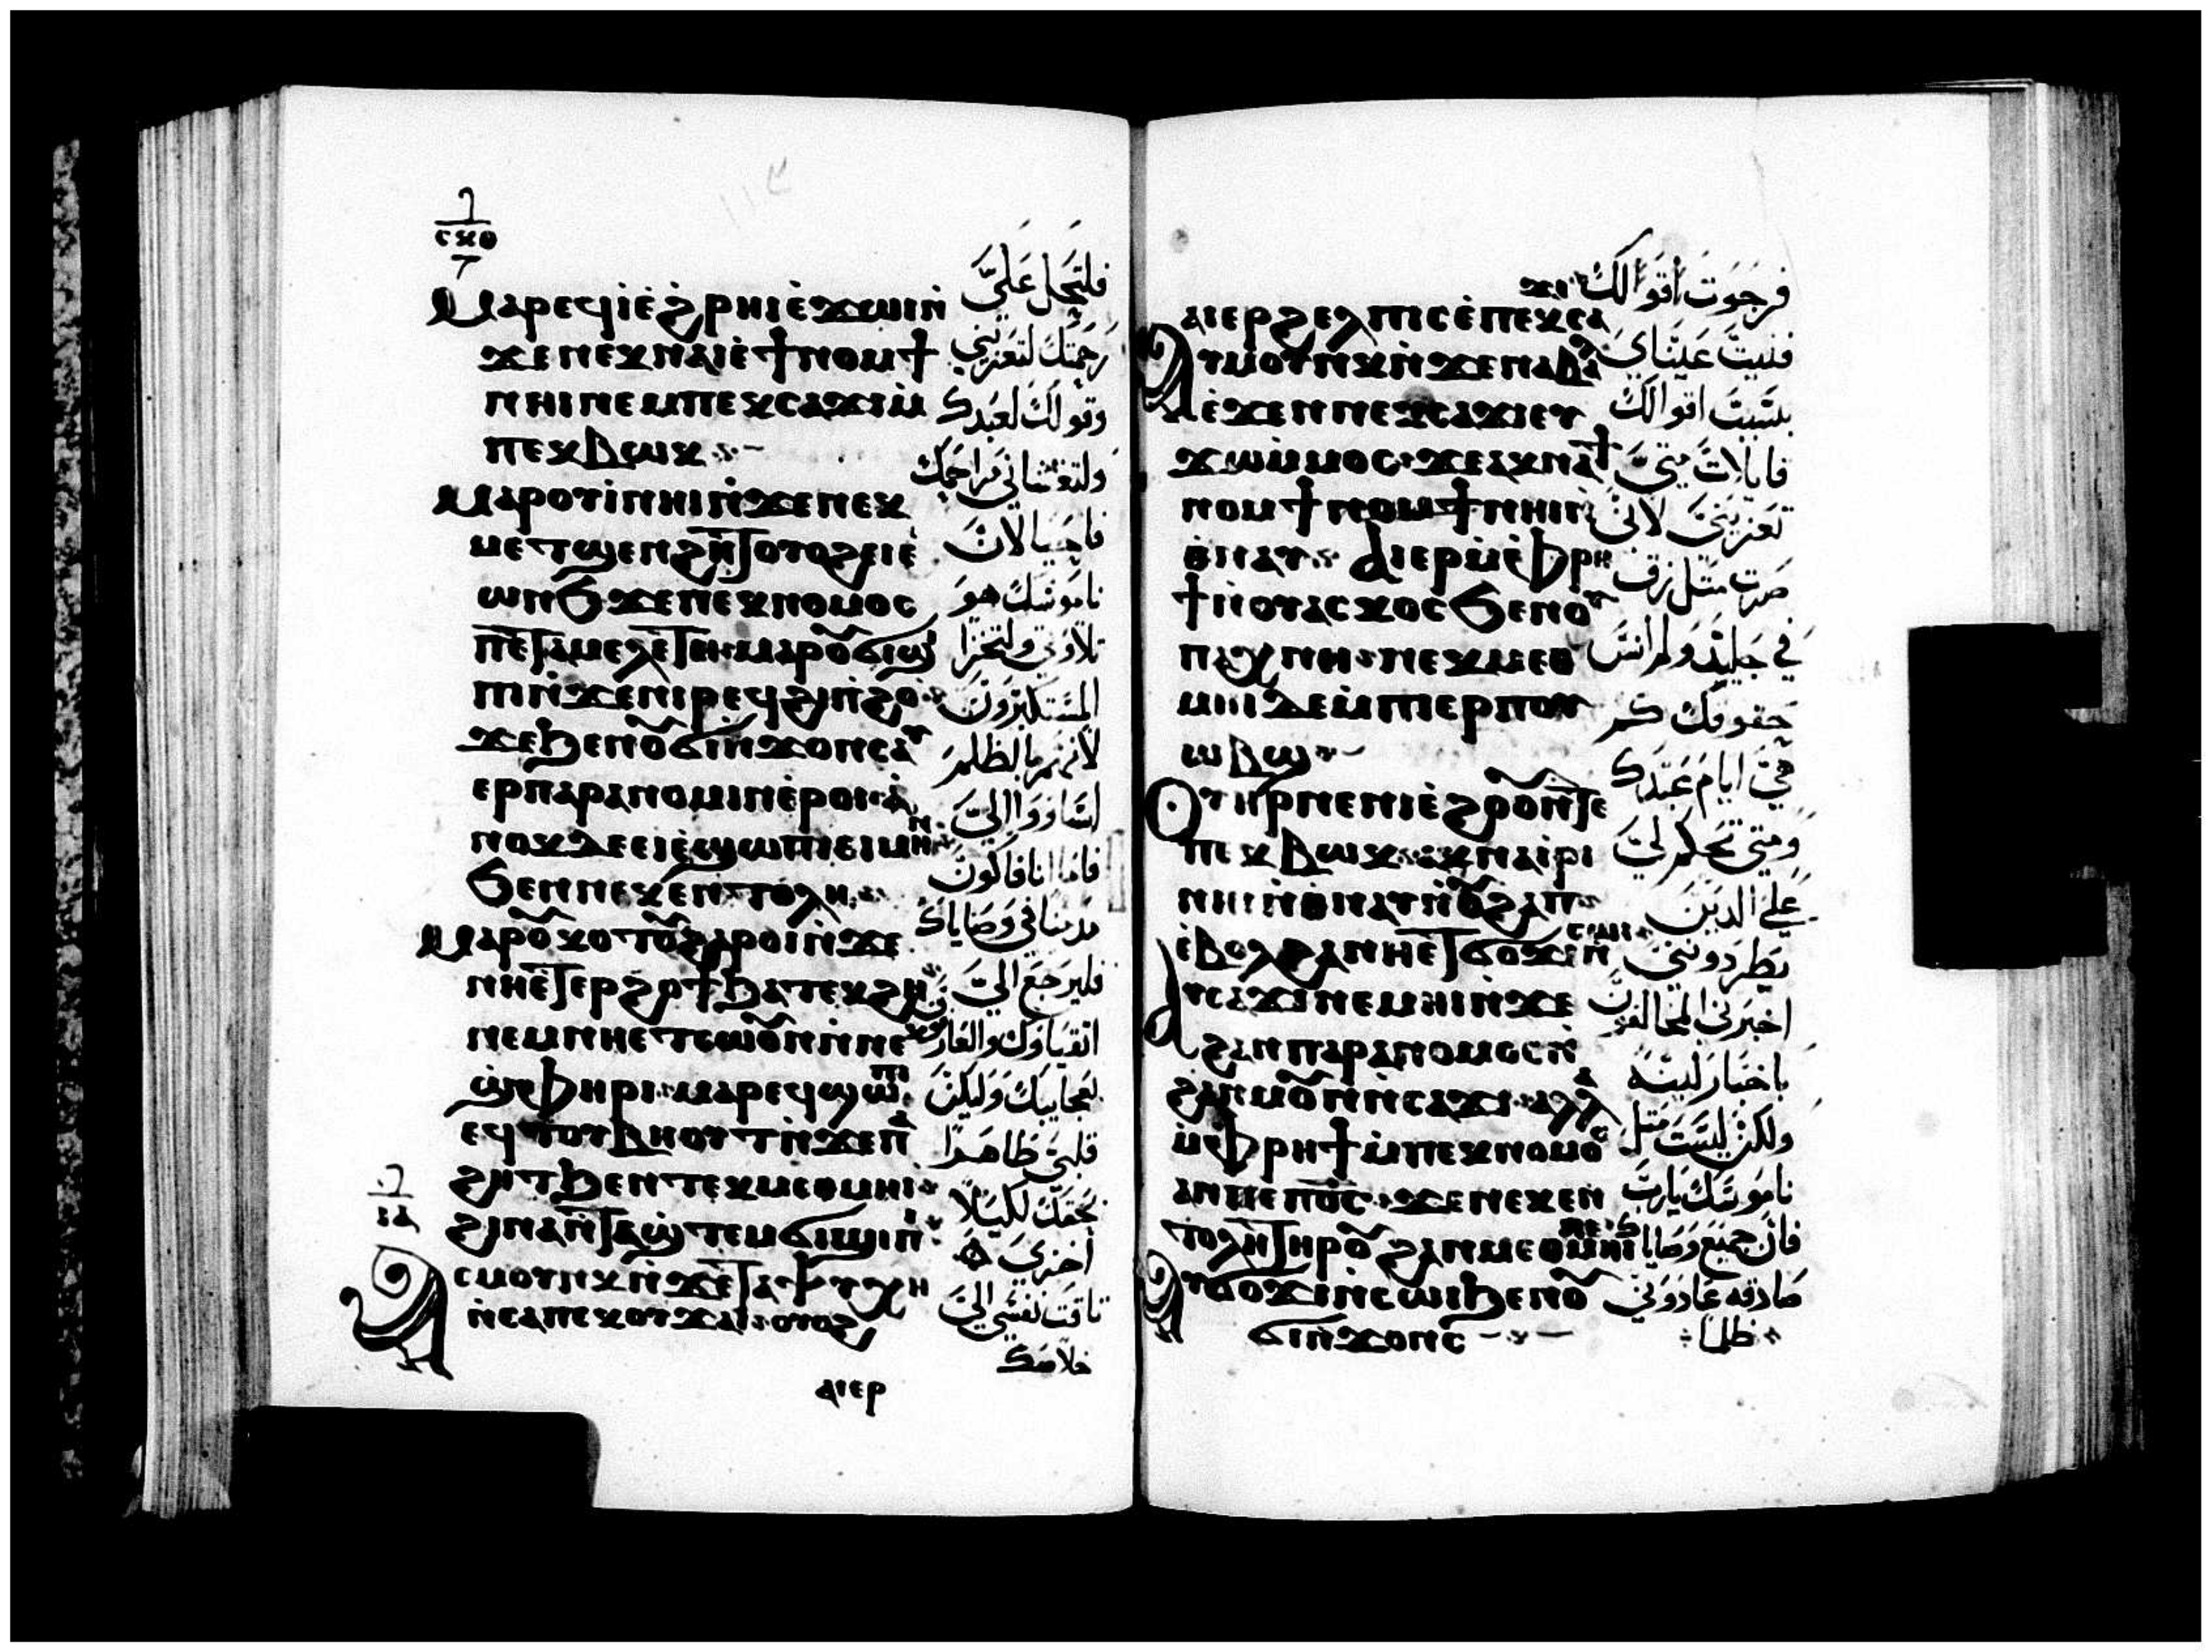 ⲙⲁⲣⲉϥⲓ̀ⲉ̀ϩ̀ⲣⲏⲓⲉ̀ϫⲱⲓⲛ̀
ϫⲉⲡⲉⲕⲛⲁⲓⲉ̀ϯⲛⲟⲙϯ
ⲛⲏⲓⲛⲉⲙⲡⲉⲕⲥⲁϫⲓⲙ̀
ⲡⲉⲕⲃⲱⲕ
ⲙⲁⲣⲟⲩⲓ̀ⲛⲏⲓⲛ̀ϫⲉⲛⲉⲕ
ⲙⲉⲧϣⲉⲛϩⲏⲧⲟⲩⲟϩⲉⲓⲉ̀
ⲱⲛϧϫⲉⲡⲉⲕⲛⲟⲙⲟⲥ
ⲡⲉⲧⲁⲙⲉⲗⲉⲧⲏ·ⲙⲁⲣⲟⲩϭⲓϣ
ⲡⲓⲛ̀ϫⲉⲛⲓⲣⲉϥϩⲓⲛ̀ϩⲟ
ϫⲉϧⲉⲛⲟⲩϭⲓⲛϫⲟⲛⲥⲁⲩ
ⲉⲣⲡⲁⲣⲁⲛⲟⲙⲓⲛⲉ̀ⲣⲟⲓ·ⲁ̀
ⲛⲟⲕⲇⲉⲉⲓⲉ̀ϣⲱⲡⲓⲉⲓⲙⲏⲛ
ϧⲉⲛⲛⲉⲕⲉⲛⲧⲟⲗⲏ
ⲙⲁⲣⲟⲩⲕⲟⲧⲟⲩϩⲁⲣⲟⲓⲛ̀ϫⲉ
ⲛⲏⲉⲧⲉⲣϩⲟϯϧⲁⲧⲉⲕϩⲏ
ⲛⲉⲙⲛⲏⲉⲧⲥⲱⲟⲩⲛⲛ̀ⲛⲉⲕ
ϣ̀ⲫⲏⲣⲓ·ⲙⲁⲣⲉϥϣⲱⲡⲓ
ⲉϥⲧⲟⲩⲃⲏⲟⲩⲧⲛ̀ϫⲉⲡⲁ
ϩⲏⲧϧⲉⲛⲧⲉⲕⲙⲉⲑⲙⲏⲓ
ϩⲓⲛⲁⲛ̀ⲧⲁϣ̀ⲧⲉⲙϭⲓϣⲓⲡⲓ
ⲁⲥⲙⲟⲩⲛⲕⲛ̀ϫⲉⲧⲁⲯⲩⲭⲏ
ⲛ̀ⲥⲁⲡⲉⲕⲟⲩϫⲁⲓ·ⲟⲩⲟϩ
ⲁⲓⲉⲣ
فلتحل عليَّ
رحمتك لتعزيني
وقولك لعبدك
ولتغشاني مراحمك
فاحيا لان
ناموسك هو
تلاوتي ولتخزا
المستكبرون
لانهم بالظلم
اساووا اليّ
فاما انا فاكون
مدمنا في وصاياك
فليرجع اليّ
اتقياوك والعارفون
لعجايبك وليكن
قلبي طاهرا
بحقك لكيلا
اخزي
تاقت نفسي الي
خلاصك
ⲁⲓⲉⲣϩⲉⲗⲡⲓⲥⲉ̀ⲡⲉⲕⲥⲁϫⲓ
ⲁⲩⲙⲟⲩⲛⲕⲛ̀ϫⲉⲛⲁⲃⲁⲗ
ⲉ̀ϫⲉⲛⲛⲉⲕⲥⲁϫⲓⲉⲩ
ϫⲱⲙ̀ⲙⲟⲥ·ϫⲉⲁⲕⲛⲁϯ
ⲛⲟⲙϯⲛⲟⲙϯⲛⲏⲓⲛ̀
ⲑⲛⲁⲩ ⲁⲓⲉⲣⲙ̀ⲫⲣⲏ
ϯⲛⲟⲩⲁⲥⲕⲟⲥϧⲉⲛⲟⲩ
ⲡⲁⲭⲛⲏ·ⲛⲉⲕⲙⲉⲑ
ⲙⲏⲓⲇⲉⲙ̀ⲡⲓⲉⲣⲡⲟⲩ
ⲱⲃϣ
ⲟⲩⲏⲣⲛⲉⲛⲓⲉ̀ϩⲟⲟⲩⲛ̀ⲧⲉ
ⲡⲉⲕⲃⲱⲕ·ⲁⲕⲛⲁⲓ̀ⲣⲓ
ⲛⲏⲓⲛ̀ⲑⲛⲁⲩⲛ̀ⲟⲩϩⲁⲡ
ⲉ̀ⲃⲟⲗϩⲁⲛⲏⲉⲧϭⲟϫⲓⲛ̀ⲥⲱⲓ
ⲁⲩⲥⲁϫⲓⲛⲉⲙⲏⲓⲛ̀ϫⲉ
ϩⲁⲛⲡⲁⲣⲁⲛⲟⲙⲟⲥⲛ̀
ϩⲁⲛⲙⲟⲩⲛⲛ̀ⲥⲁϫⲓ·ⲁⲗⲗⲁ
ⲙ̀ⲫⲣⲏϯⲙ̀ⲡⲉⲕⲛⲟⲙⲟⲥ
ⲁⲛⲡⲉⲡⲟ̅ⲥ̅·ϫⲉⲛⲉⲕⲉⲛ
ⲧⲟⲗⲏⲧⲏⲣⲟⲩϩⲁⲛⲙⲉⲑⲙⲏⲓⲛⲉ
ⲁⲩϭⲟϫⲓⲛ̀ⲥⲱⲓϧⲉⲛⲟⲩ
ϭⲓⲛ̀ϫⲟⲛⲥ
فرجوت اقوالك
فنيت عيناي
بسبب اقوالك
قايلات متي
تعزيني لاني
صرت مثل زق
في جليد ولم انس
حقوقك كم
هي ايام عبدك
ومتي تحكم لي
علي الذين
يطردونني
اخبرني المخالفون
باخبار لينه
ولكن ليست مثل
ناموسك يا رب
فان جميع وصاياك
صادقه عادوني
ظلما